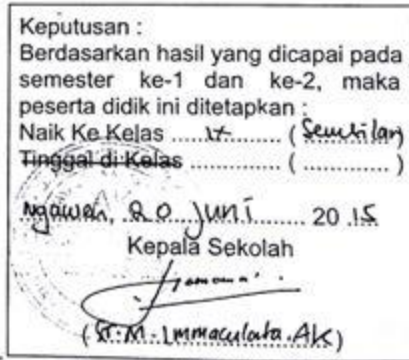 Keputusan :
Berdasarkan hasil yang dicapai pada
semester ke-1 dan ke-2, maka
peserta didik ini ditetapkan :
Naik Ke Kelas ...IX... ( Sembilan )
Tinggal di Kelas ............. ( ............ )
Ngawen, 20 Juni 2015
Kepala Sekolah
(Sr. M. Immaculata. AK)